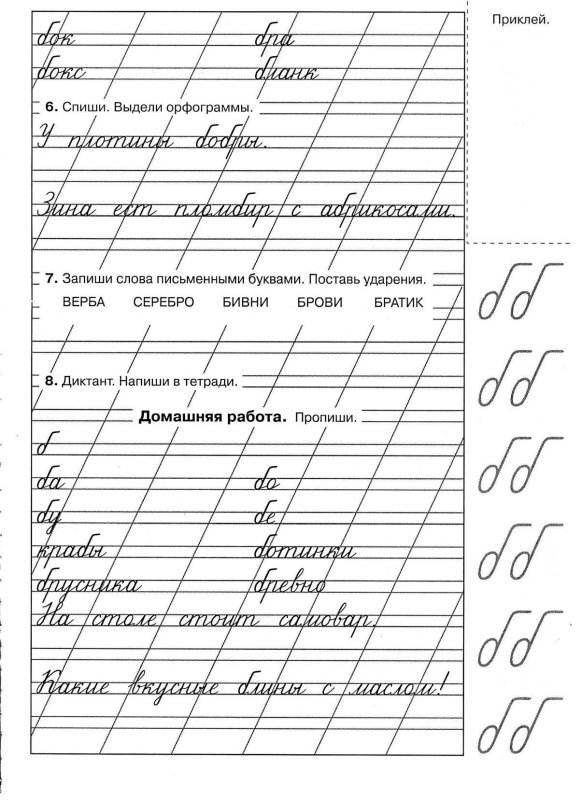 бок бра
Приклей.
бокс бланк
6. Спиши. Выдели орфограммы.
У плотины бобры.
Зина ест пломбир с абрикосами.
7. Запиши слова письменными буквами. Поставь ударения.
ВЕРБА СЕРЕБРО БИВНИ БРОВИ БРАТИК
б б
8. Диктант. Напиши в тетради.
б б
Домашняя работа. Пропиши.
б
ба бо
б б
бу бе
крабы ботинки
б б
брусника бревно
На столе стоит самовар.
б б
Какие вкусные блины с маслом!
б б